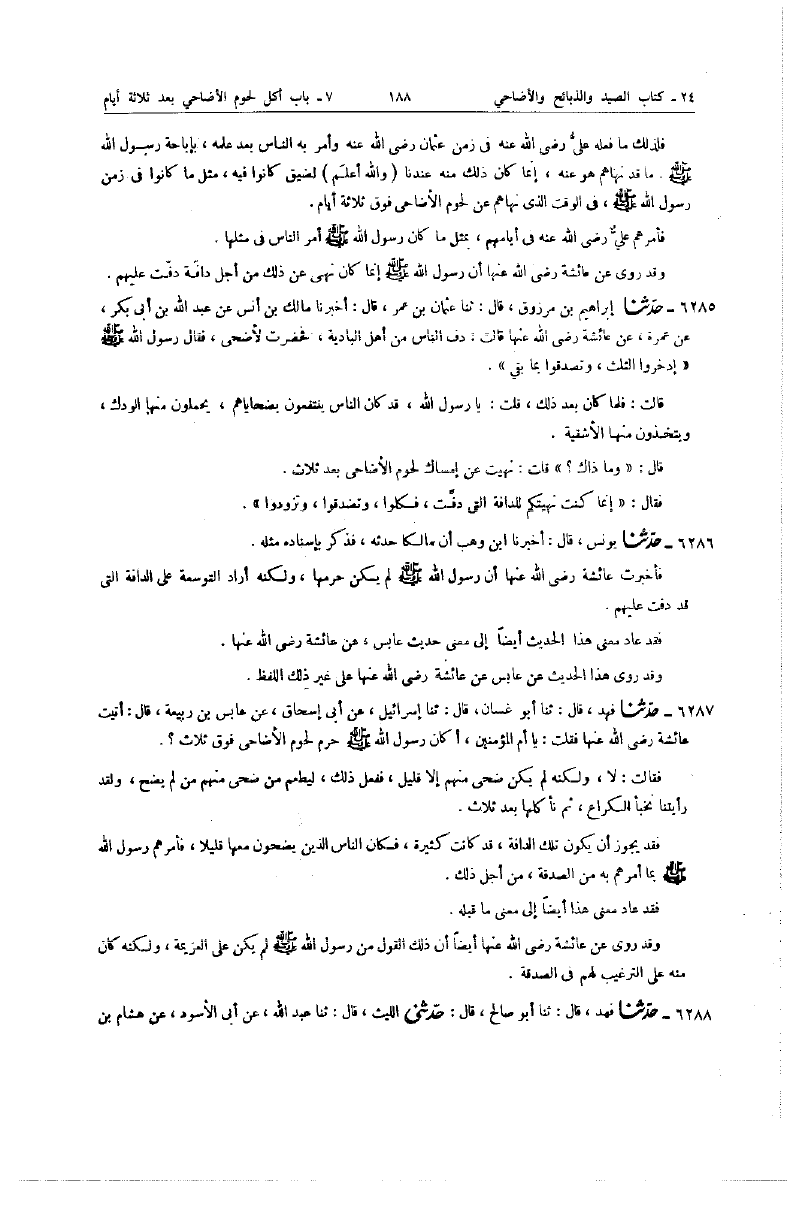 ٢٤ ـ كتاب الصيد والذبائح والأضاحي ١٨٨ ٧ ـ باب أكل لحوم الأضاحي بعد ثلاثة أيام
فلذلك ما فعله عليٌّ رضى الله عنه فى زمن عثمان رضى الله عنه وأمر به الناس بعد علمه ، بإباحة رسول الله
ﷺ . ما قد نهاهم هو عنه ، إنما كان ذلك منه عندنا ( والله أعلم ) لضيق كانوا فيه ، مثل ما كانوا فى زمن
رسول الله ﷺ ، فى الوقت الذى نهاهم عن لحوم الأضاحى فوق ثلاثة أيام .
فأمرهم عليٌّ رضى الله عنه فى أيامهم ، بمثل ما كان رسول الله ﷺ أمر الناس فى مثلها .
وقد روى عن عائشة رضى الله عنها أن رسول الله ﷺ إنما كان نهى عن ذلك من أجل دافة دفّت عليهم .
٦٢٨٥ ـ حدّثنا إبراهيم بن مرزوق ، قال : ثنا عثمان بن عمر ، قال : أخبرنا مالك بن أنس عن عبد الله بن أبى بكر ،
عن عمرة ، عن عائشة رضى الله عنها قالت : دف الناس من أهل البادية ، فحضرت لأضحى ، فقال رسول الله ﷺ
« إدخروا الثلث ، وتصدقوا بما بقي » .
قالت : فلما كان بعد ذلك ، قلت : يا رسول الله ، قد كان الناس ينتفعون بضحاياهم ، يحملون منها الودك ،
ويتخذون منها الأسقية .
قال : « وما ذاك ؟ » قلت : نهيت عن إمساك لحوم الأضاحى بعد ثلاث .
فقال : « إنما كنت نهيتكم للدافة التى دفّت ، فكلوا ، وتصدقوا ، وتزودوا » .
٦٢٨٦ ـ حدّثنا يونس ، قال : أخبرنا ابن وهب أن مالكا حدثه ، فذكر بإسناده مثله .
فأخبرت عائشة رضى الله عنها أن رسول الله ﷺ لم يكن حرمها ، ولكنه أراد التوسعة على الدافة التى
قد دفت عليهم .
فقد عاد معنى هذا الحديث أيضاً إلى معنى حديث عابس ، عن عائشة رضى الله عنها .
وقد روى هذا الحديث عن عابس عن عائشة رضى الله عنها على غير ذلك اللفظ .
٦٢٨٧ ـ حدّثنا فهد ، قال : ثنا أبو غسان ، قال : ثنا إسرائيل ، عن أبى إسحاق ، عن عابس بن ربيعة ، قال : أتيت
عائشة رضى الله عنها فقلت : يا أم المؤمنين ، أكان رسول الله ﷺ حرم لحوم الأضاحى فوق ثلاث ؟ .
فقالت : لا ، ولكنه لم يكن ضحى منهم إلا قليل ، ففعل ذلك ، ليطعم من ضحى منهم من لم يضح ، ولقد
رأيتنا نخبأ الكراع ، ثم نأكلها بعد ثلاث .
فقد يجوز أن يكون تلك الدافة ، قد كانت كثيرة ، فكان الناس الذين يضحون معها قليلا ، فأمرهم رسول الله
ﷺ بما أمرهم به من الصدقة ، من أجل ذلك .
فقد عاد معنى هذا أيضاً إلى معنى ما قبله .
وقد روى عن عائشة رضى الله عنها أيضاً أن ذلك القول من رسول الله ﷺ لم يكن على العزيمة ، ولكنه كان
منه على الترغيب لهم فى الصدقة .
٦٢٨٨ ـ حدّثنا فهد ، قال : ثنا أبو صالح ، قال : حدّثنى الليث ، قال : ثنا عبد الله ، عن أبى الأسود ، عن هشام بن